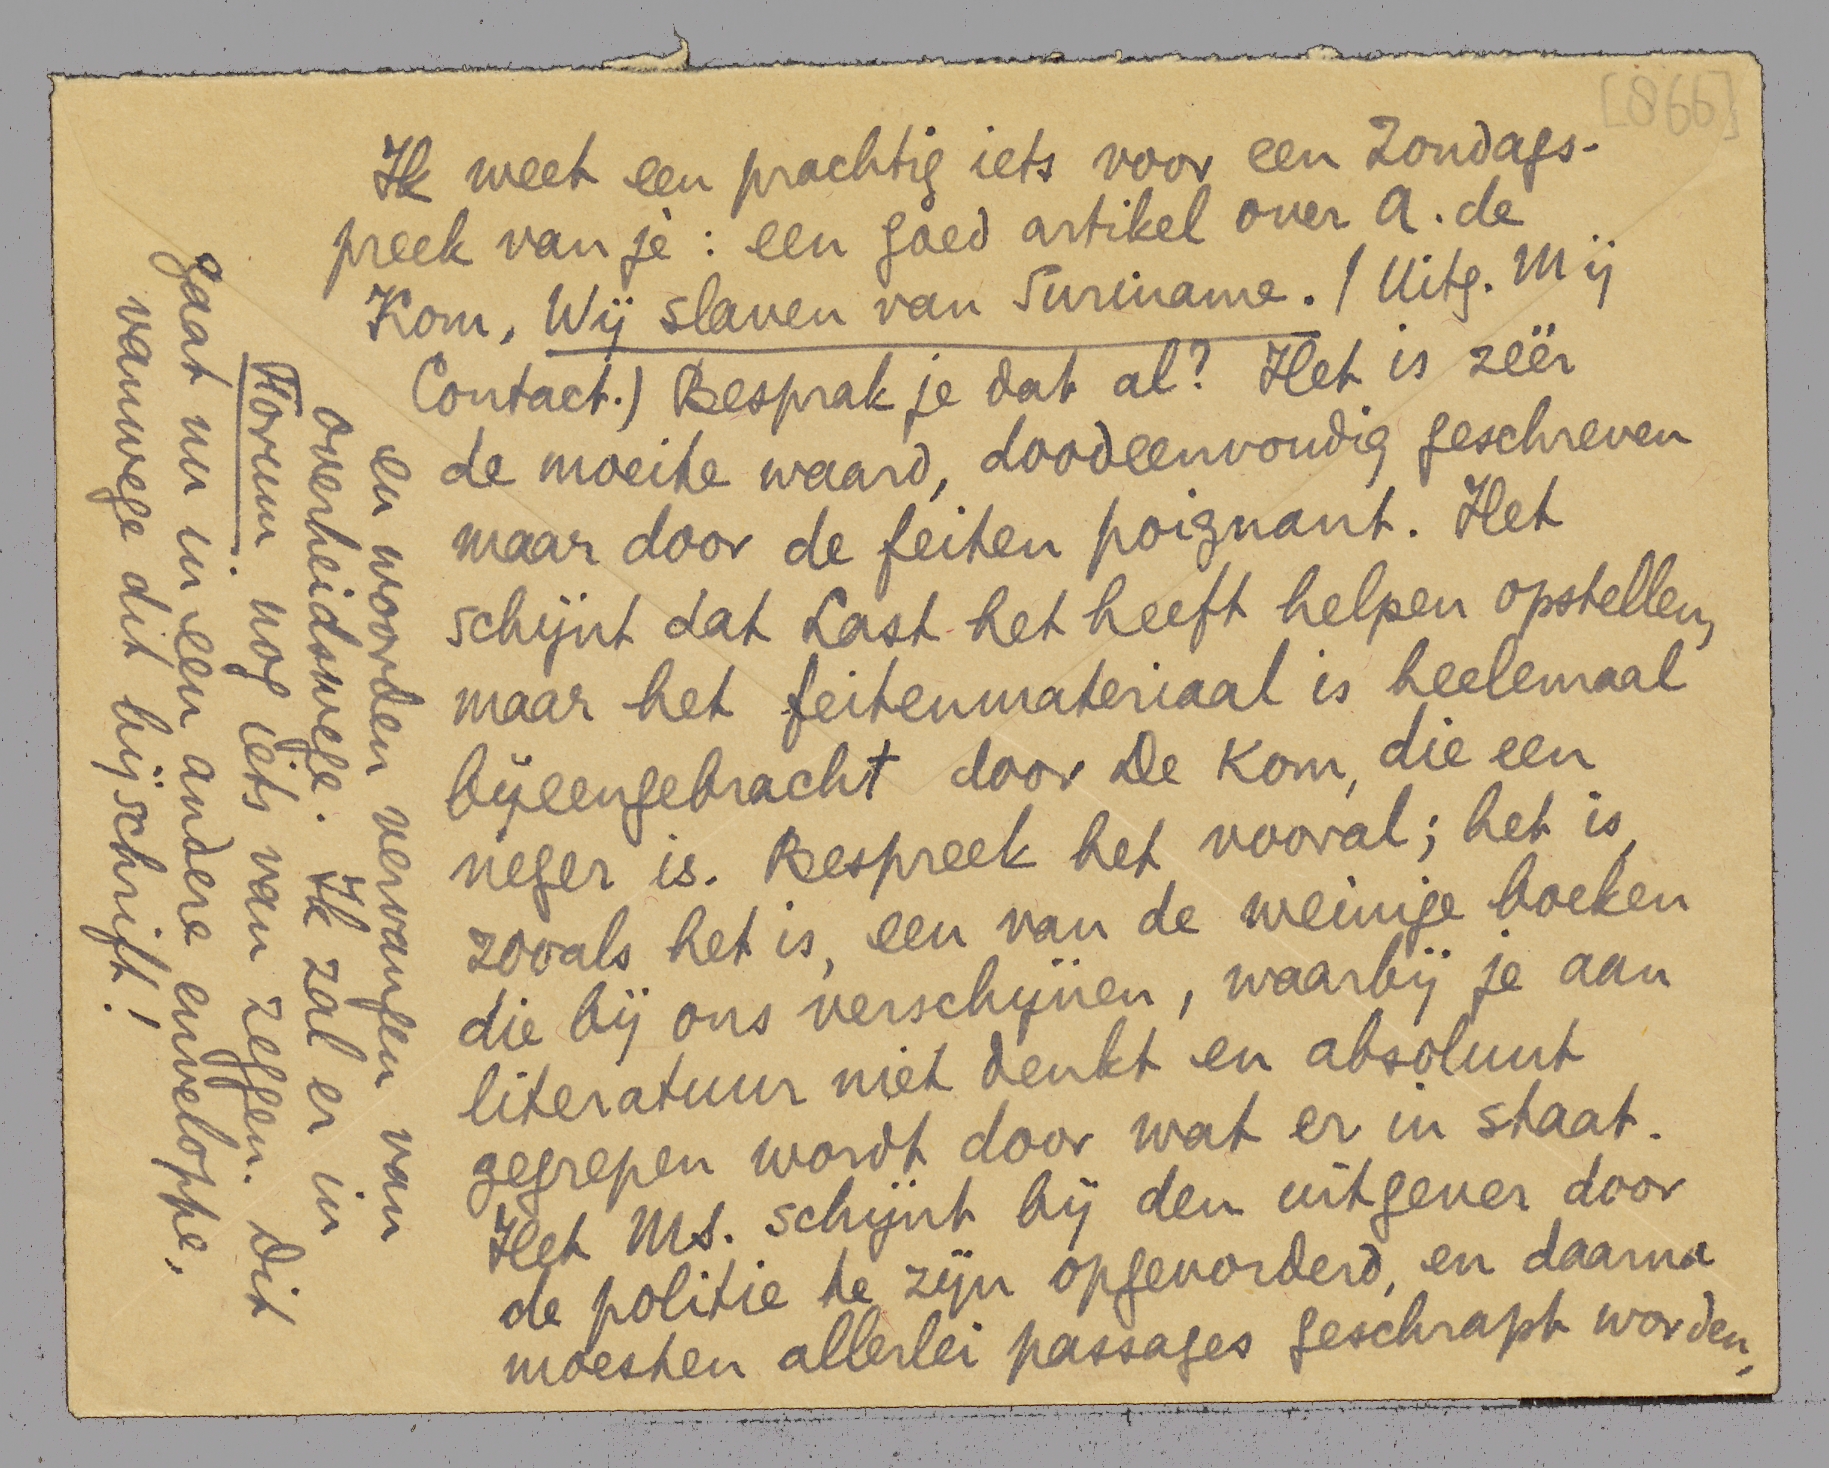 [866]
Ik weet een prachtig iets voor een Zondags-
preek van je: een goed artikel over A. de
Kom, Wij slaven van Suriname. (Uitg. Mij
Contact.) Besprak je dat al? Het is zéér
de moeite waard, doodeenvoudig geschreven
maar door de feiten poignant. Het
schijnt dat Last het heeft helpen opstellen,
maar het feitenmateriaal is heelemaal
bijeengebracht door De Kom, die een
neger is. Bespreek het vooral; het is,
zooals het is, een van de weinige boeken
die bij ons verschijnen, waarbij je aan
literatuur niet denkt en absoluut
gegrepen wordt door wat er in staat.
Het Ms. schijnt bij den uitgever door
de politie te zijn opgevorderd, en daarna
moesten allerlei passages geschrapt worden,
en woorden vervangen van
overheidswege. Ik zal er in
Forum nog iets van zeggen. Dit
gaat nu in een andere enveloppe,
vanwege dit bijschrift!